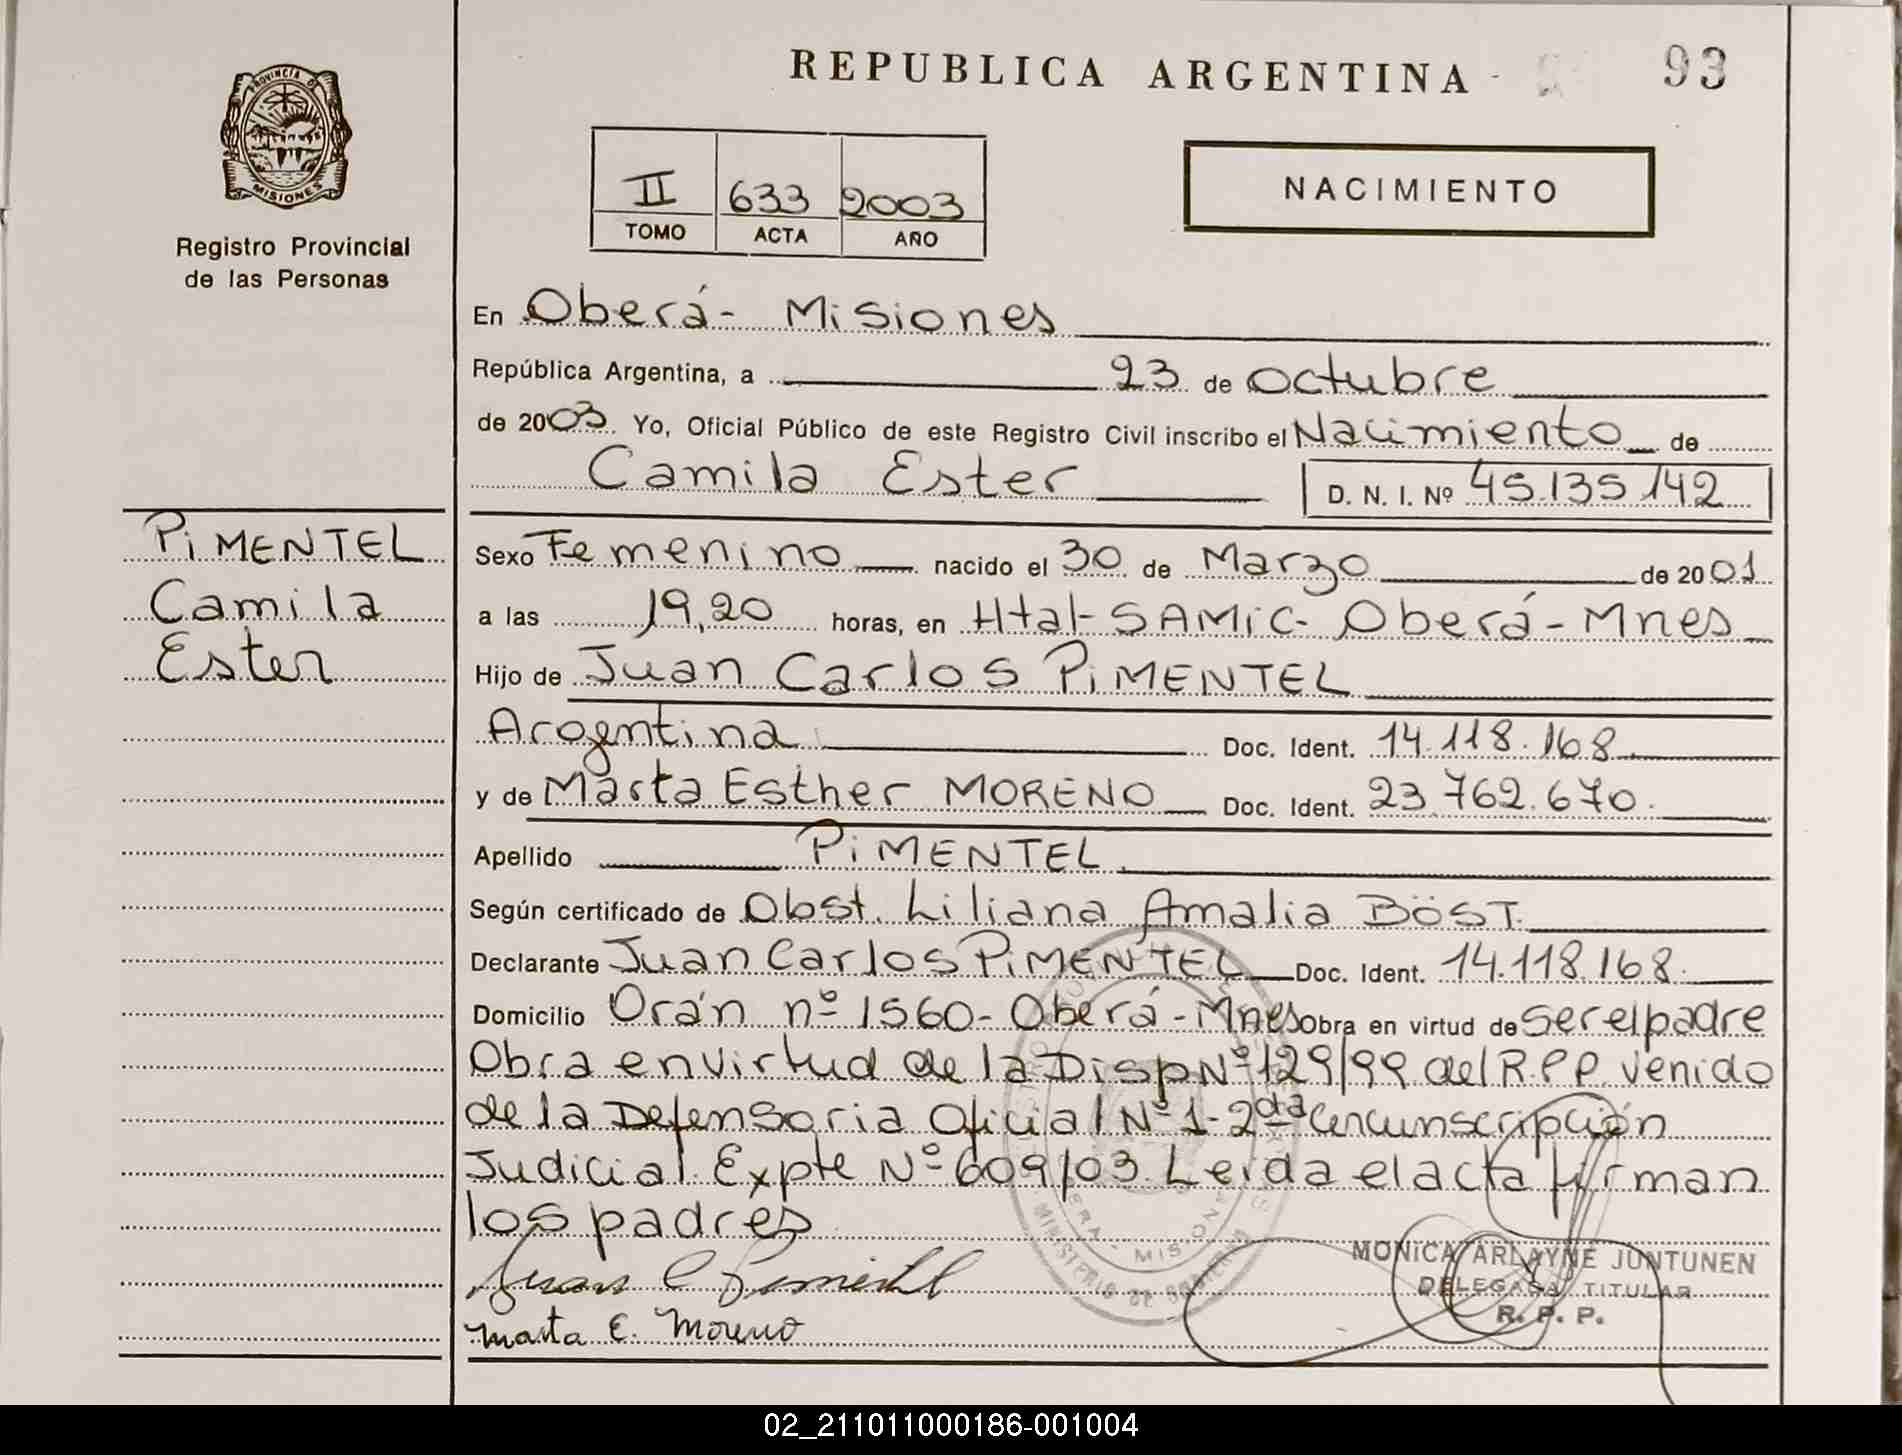 REPUBLICA ARGENTINA
93
PROVINCIA DE
MISIONES
Registro Provincial
de las Personas
II 633 2003
TOMO ACTA AÑO
NACIMIENTO
En Oberá- Misiones
República Argentina, a 23 de octubre
de 2003 Yo, Oficial Público de este Registro Civil inscribo el Nacimiento de
Camila Ester D. N. I. Nº 45.135.142
PiMENTEL
Camila
Ester
Sexo Femenino nacido el 30 de Marzo de 2001
a las 19,20 horas, en Htal-SAMiC- Oberá-Mnes
Hijo de Juan Carlos PiMENTEL
Argentina Doc. Ident. 14.118.168
y de Marta Esther MORENO Doc. Ident. 23.762.670.
Apellido PiMENTEL
Según certificado de Obst. Liliana Amalia BÖST.
Declarante Juan Carlos PiMENTEL Doc. Ident. 14.118.168.
Domicilio Orán nº 1560- Oberá-Mnes Obra en virtud de ser el padre
Obra en virtud de la Disp Nº 129/99 del R.P.P. venido
de la Defensoria Oficial Nº 1-2da Circunscripción
Judicial. Expte Nº 609/03. Leida el acta firman
los padres
Juan C Pimentel
Marta E. Moreno
MONICA ARLAYNE JUNTUNEN
DELEGADA TITULAR
R. P. P.
02_211011000186-001004